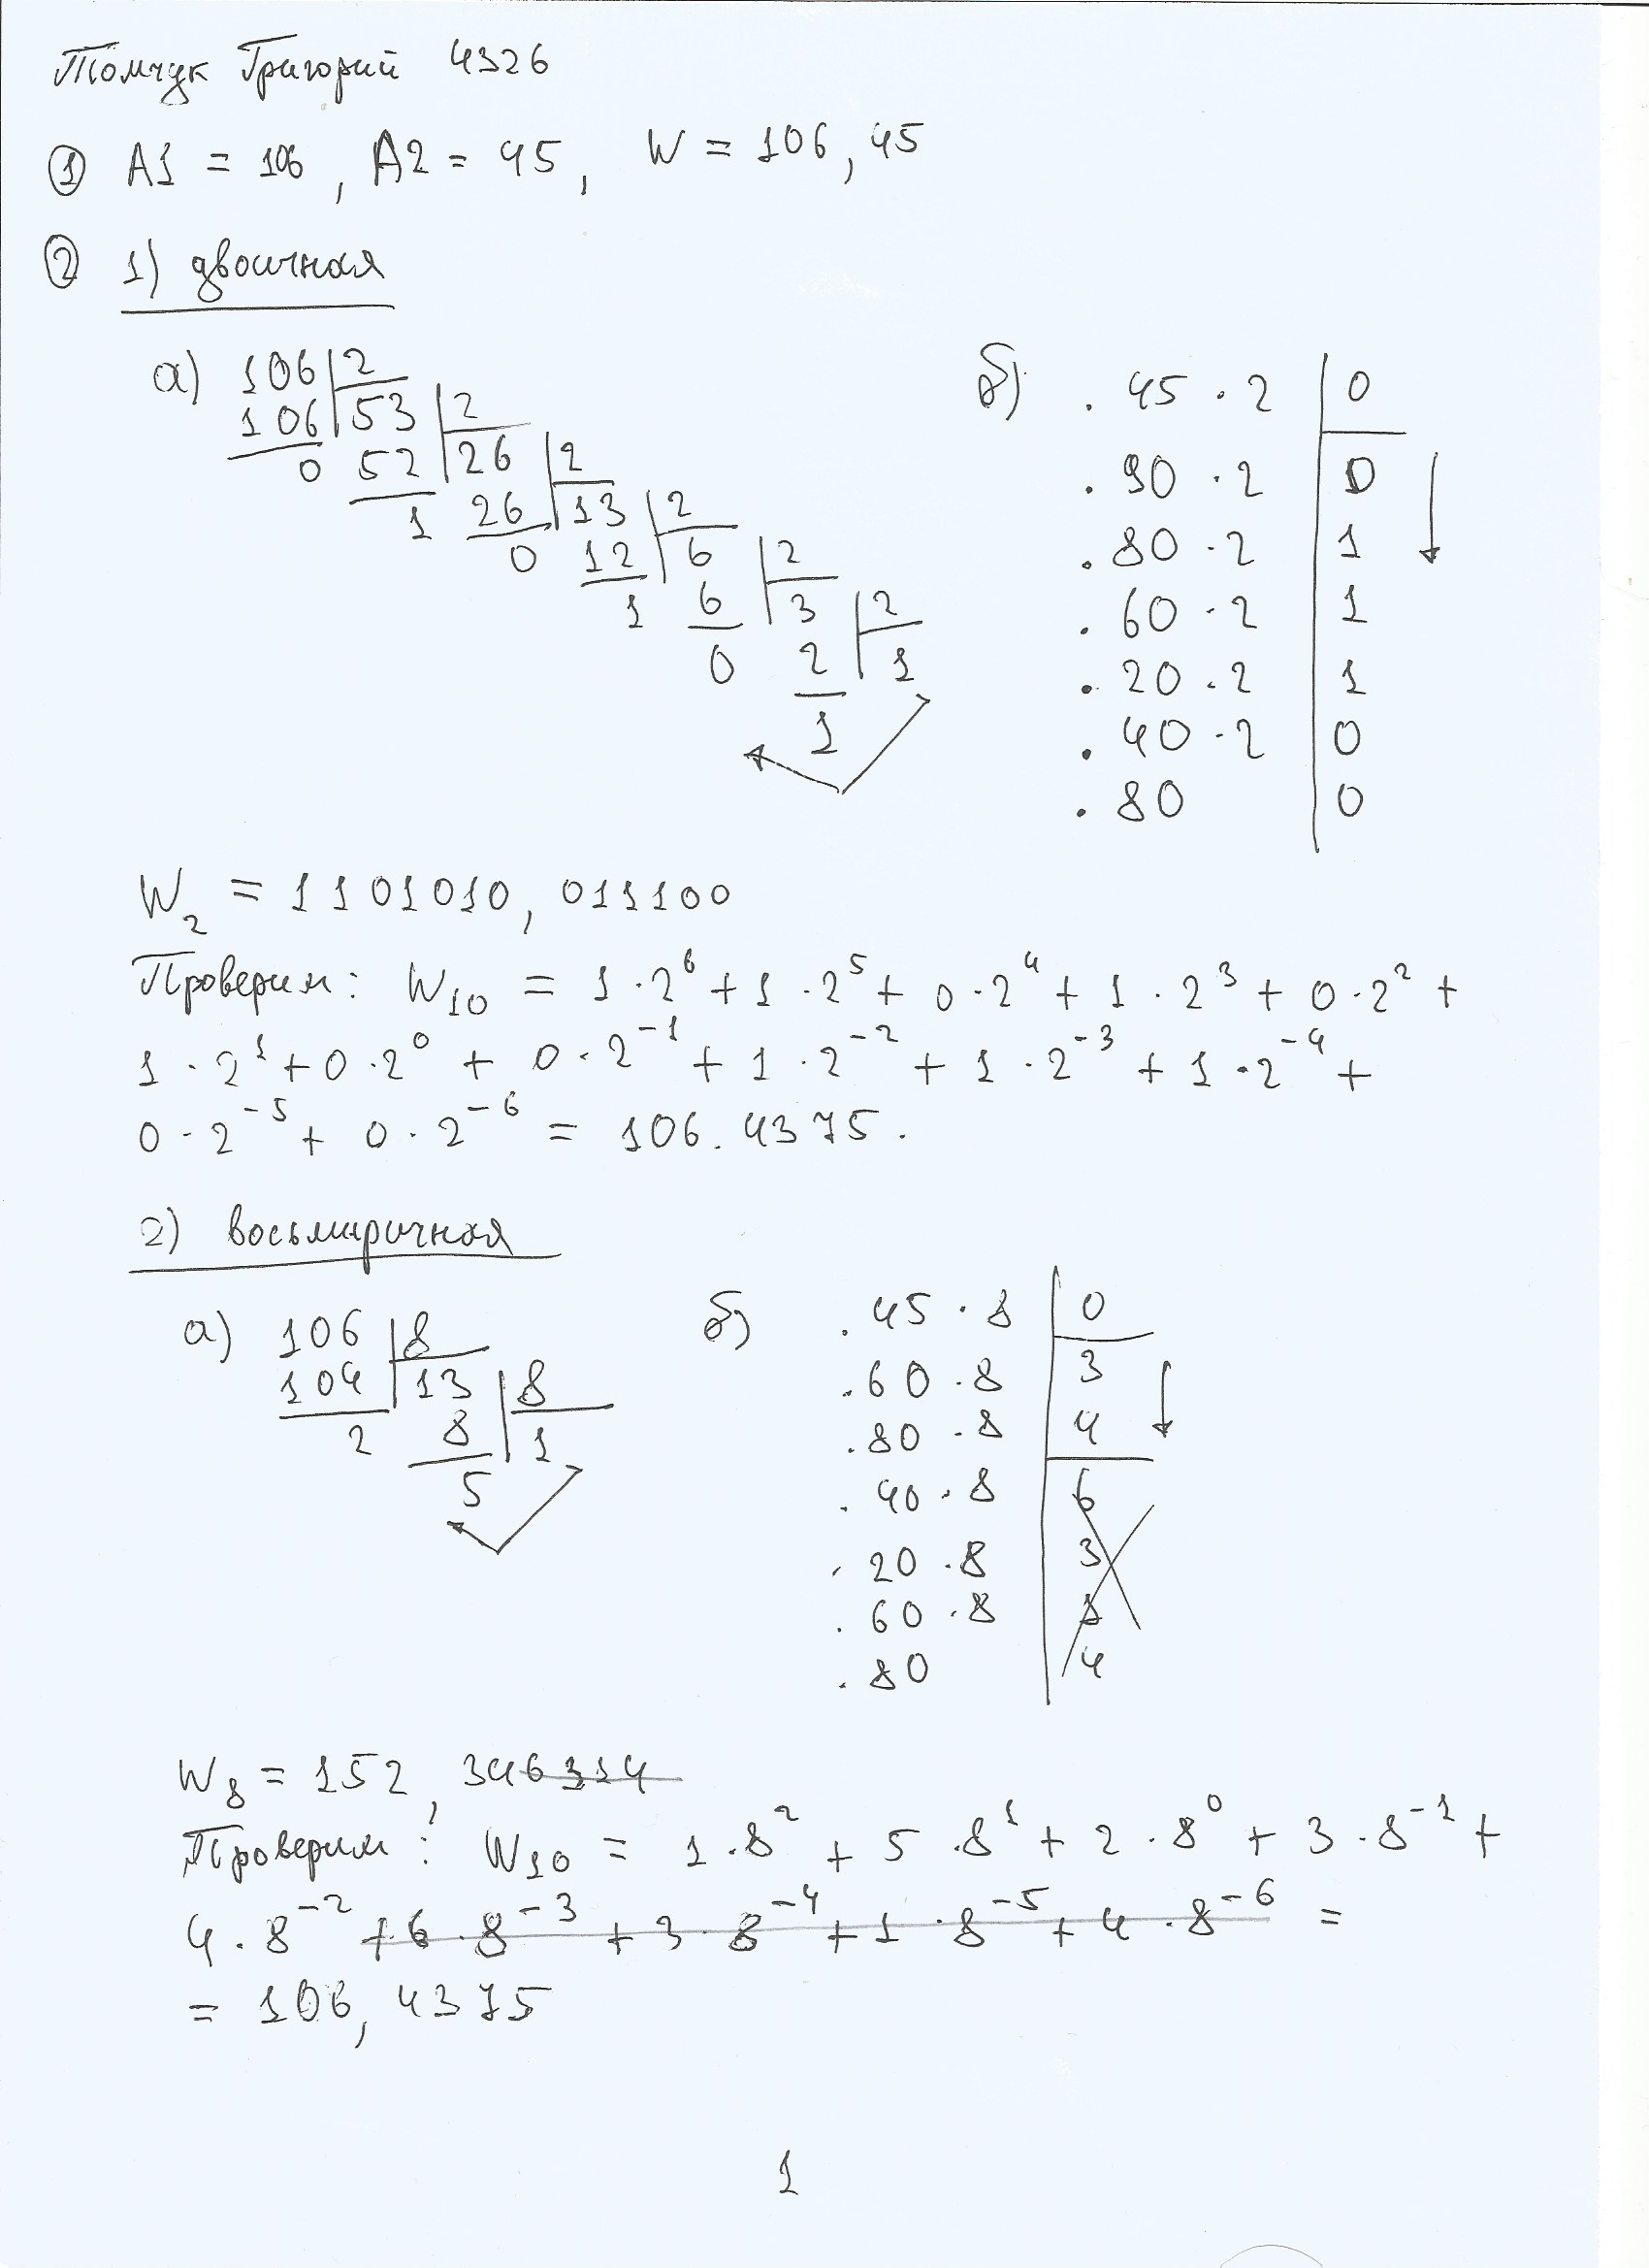 Томчук Григорий 4326
① A1 = 106, A2 = 45, W = 106,45
② 1) двоичная
а) 106 | 2
106 | 53 | 2
0 52 | 26 | 2
1 26 | 13 | 2
0 12 | 6 | 2
1 6 | 3 | 2
0 2 | 1
1
б) .45 · 2 | 0
.90 · 2 | 0
.80 · 2 | 1
.60 · 2 | 1
.20 · 2 | 1
.40 · 2 | 0
.80 | 0
W₂ = 1101010,011100
Проверим: W₁₀ = 1·2⁶ + 1·2⁵ + 0·2⁴ + 1·2³ + 0·2² +
1·2¹ + 0·2⁰ + 0·2⁻¹ + 1·2⁻² + 1·2⁻³ + 1·2⁻⁴ +
0·2⁻⁵ + 0·2⁻⁶ = 106.4375.
2) восьмиричная
а) 106 | 8
104 | 13 | 8
2 8 | 1
5
б) .45 · 8 | 0
.60 · 8 | 3
.80 · 8 | 4
.40 · 8 | 6
.20 · 8 | 3
.60 · 8 | 1
.80 | 4
W₈ = 152,346314
Проверим: W₁₀ = 1·8² + 5·8¹ + 2·8⁰ + 3·8⁻¹ +
4·8⁻² + 6·8⁻³ + 3·8⁻⁴ + 1·8⁻⁵ + 4·8⁻⁶ =
= 106,4375
1